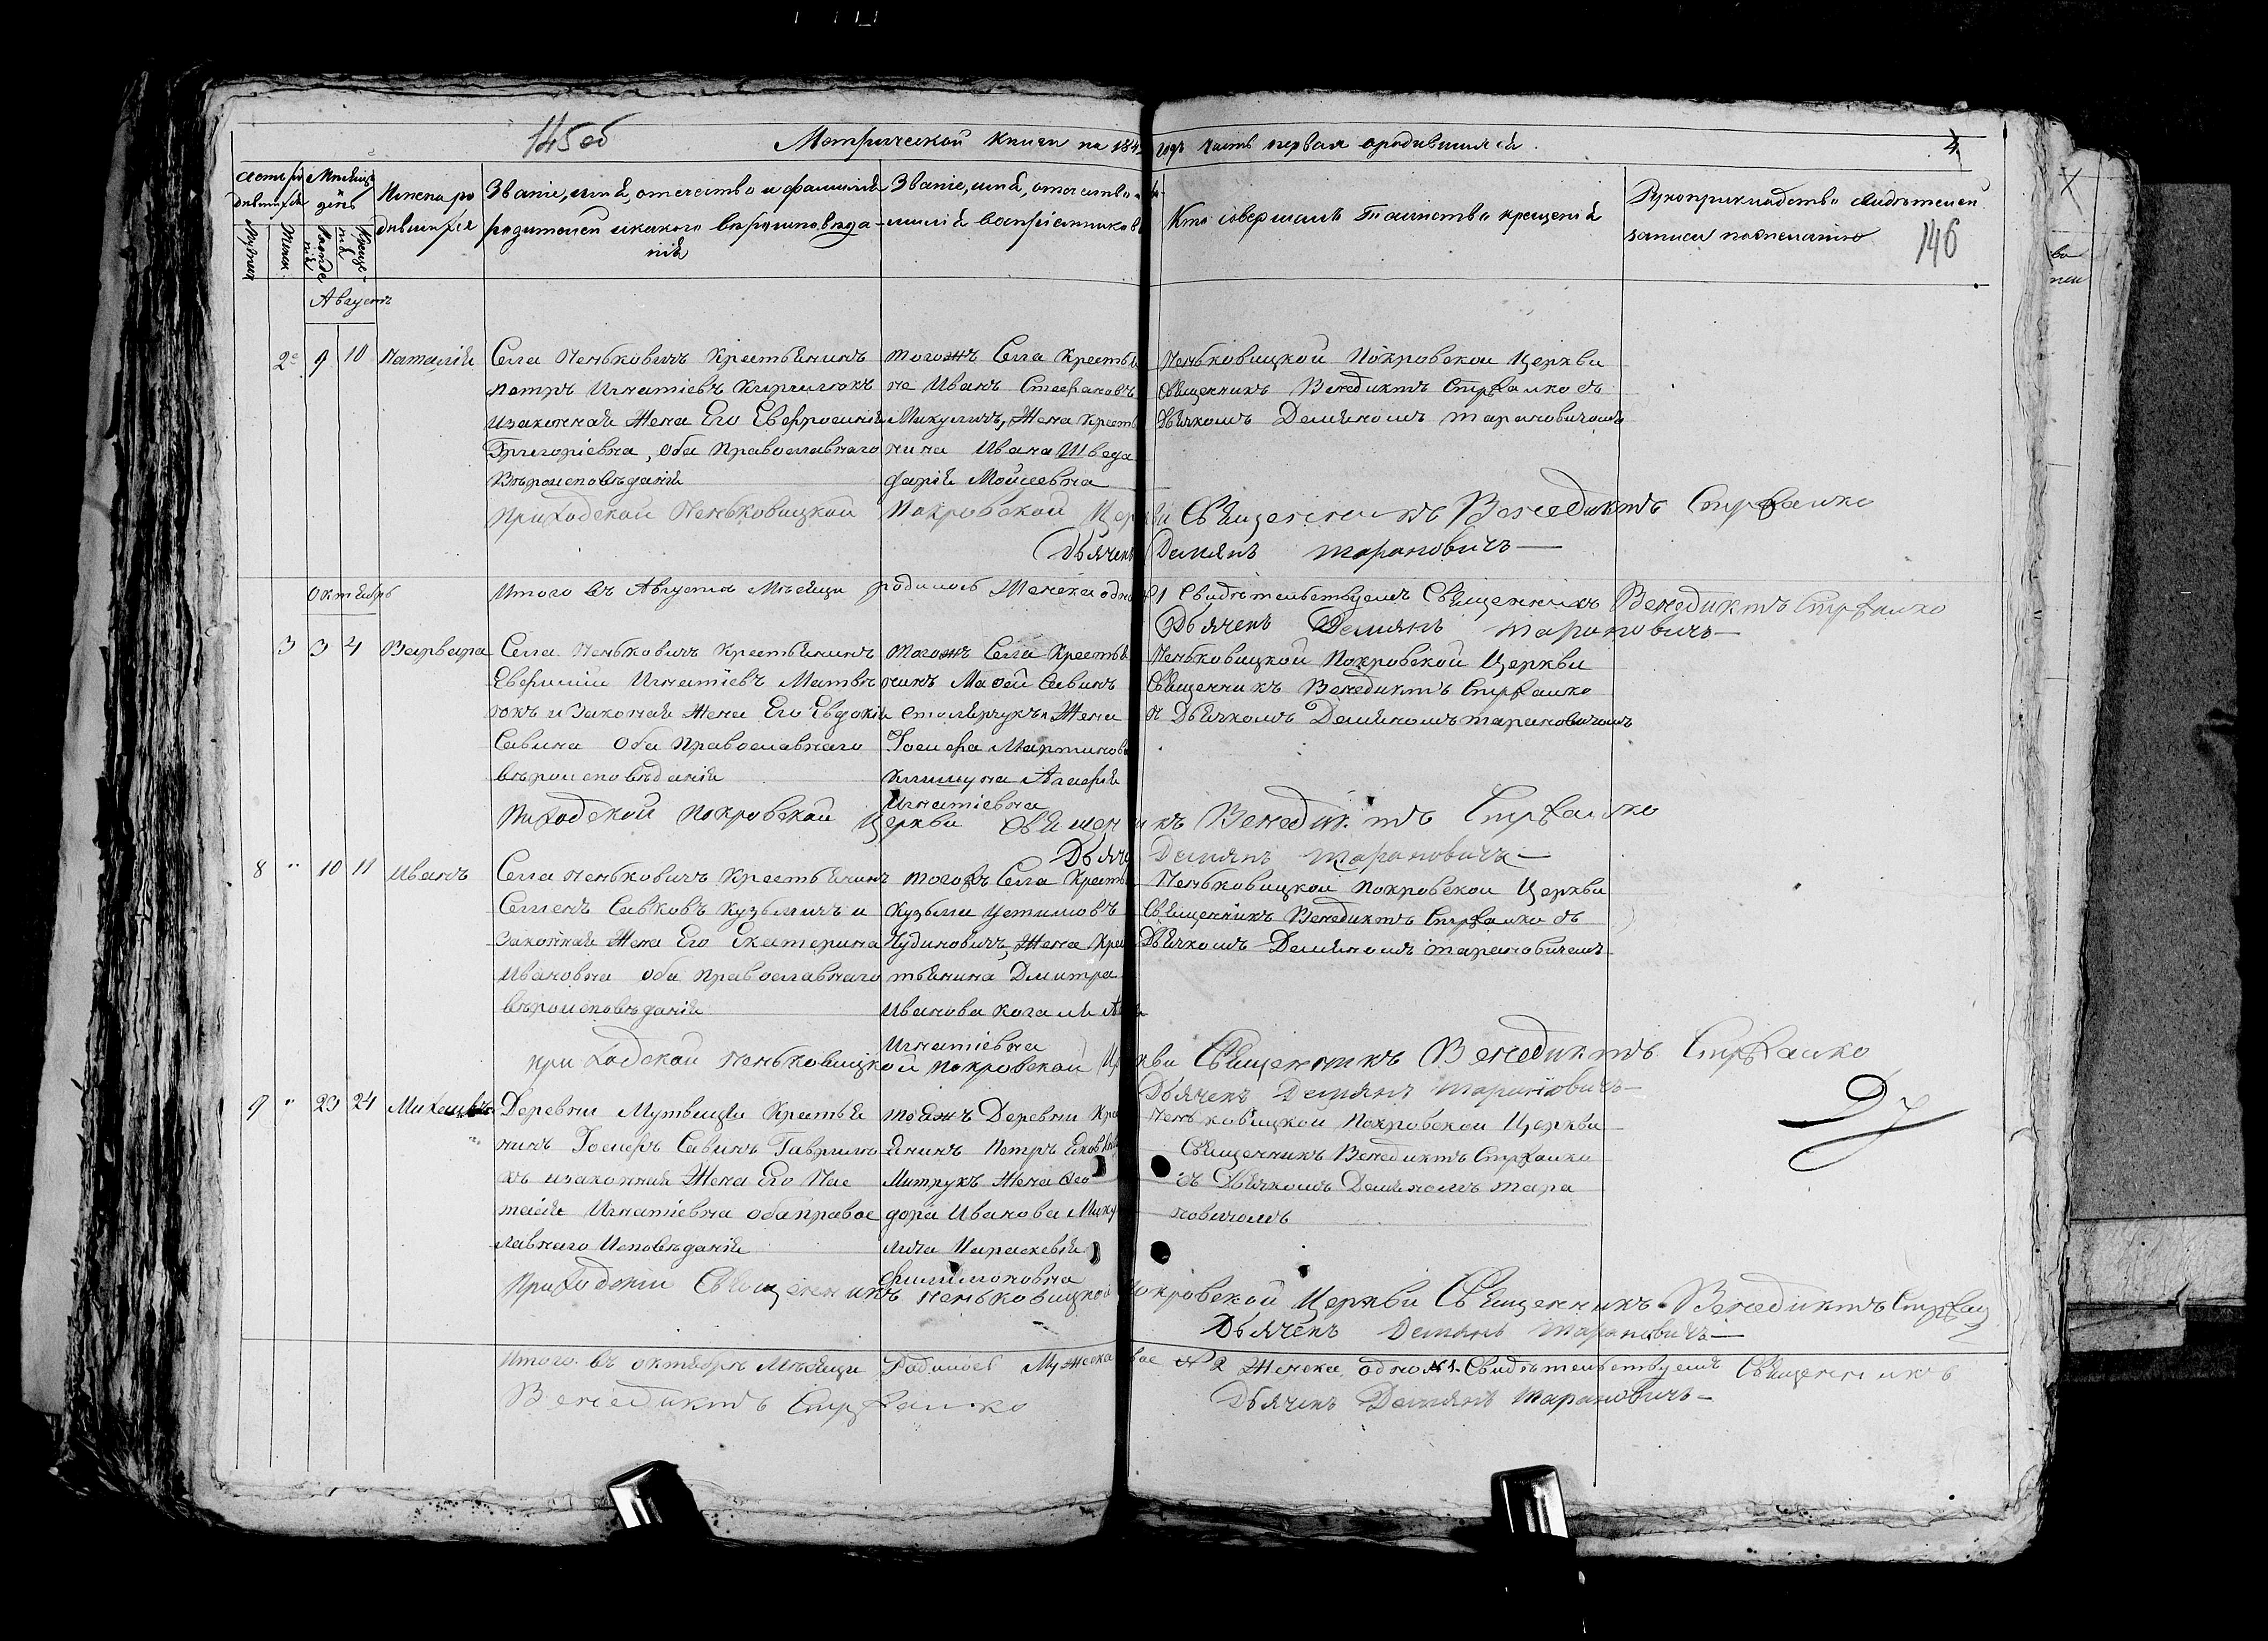 145об
Метрической книги на 184 годъ часть первая о родившихся.
4.
146
Счетъ родившихся
Мѣсяцъ и день
Имена родившихся
Званіе, имя, отечество и фамилія родителей и какого вѣроисповѣданія
Званіе, имя, отечество и фамилія воспріемниковъ
Кто совершалъ таинство крещенія
Рукоприкладство свидѣтелей записи по желанію
Мужеск
Женск.
Рожденія
Крещенія
Августъ
2 9 10 Наталія
Села Пеньковичъ Крестьянинъ
Петръ Игнатіевъ Кирилюкъ
и законная Жена Его Евфросинія
Григоріевна, оба Православнаго
Вѣроисповѣданія
тогожъ Села Крестья
не Иванъ Стефановъ
Микуличъ, Жена Кресть
нина Ивана Шведа
Дарія Мойсеевна
Пеньковицкой Покровской Церкви
Священникъ Венедиктъ Стрѣлко съ
Дьячкомъ Деміяномъ Тарановичомъ
Приходской Пеньковицкой Покровской Церкви Священникъ Венедиктъ
Дьячекъ Демянъ Тарановичъ
Октябрь
Итого въ Августѣ Мѣсяцѣ родилось Женска одно №1 Свидѣтельствуемъ Священникъ Венедиктъ
Дьячекъ Демянъ Тарановичъ
3 3 4 Варвара
Села Пеньковичъ Крестьянинъ
Евфимій Игнатіевъ Матвѣ
юкъ и Законая Жена Его Евдокія
Савина Оба Православнаго
вѣроисповѣданія
тогожъ Села Крестья
нинъ Мафей Савинъ
Столярчукъ, Жена
Іосифа Мартинова
Климуна Агафія
Игнатіевна
Пеньковицкой Покровской Церкви
Священникъ Венедиктъ
съ Дьячкомъ Деміяномъ Тарановичомъ
Приходской Покровской Церкви Священникъ Венедиктъ
Дьячекъ Демянъ Тарановичъ
8 " 10 11 Иванъ
Села Пеньковичъ Крестьянинъ
Семенъ Савковъ Кузьмичъ и
Законая Жена Его Екатерина
Ивановна оба Православнаго
вѣроисповѣданія
тогожъ Села Кресть
Кузьма Устимовъ
Чудиновичъ, Жена Крес
тьянина Дмитра
Иванова
Игнатіевна
Пеньковицкой Покровской Церкви
Священникъ Венедиктъ съ
Дьячкомъ Деміяномъ Тарановичемъ
Приходской Пеньковицкой Покровской Церкви Священникъ Венедиктъ
Дьячекъ Демянъ Тарановичъ
9 " 23 24 Михаилъ
Деревни Мутвицы Крестья
нинъ Іосифъ Савинъ Гаврилю
къ и законная Жена Его Нас
тасія Игнатіевна оба правос
лавнаго Исповѣданія
тояжъ Деревни Крес
янинъ Петръ
Митрукъ Жена Фео
дора Иванова Мику
лича Параскевія
Филимоновна
Пеньковицкой Покровской Церкви
Священникъ Венедиктъ
съ Дьячкомъ Деміяномъ Тара
новичомъ
Приходскій Священникъ Пеньковицкой Покровской Церкви Священникъ Венедиктъ
Дьячекъ Демянъ Тарановичъ
Итого въ октябрѣ Мѣсяцѣ Родилось Мужеска двое №2 Женска одно №1. Свидѣтельствуемъ Священникъ
Венедиктъ
Дьячекъ Демянъ Тарановичъ